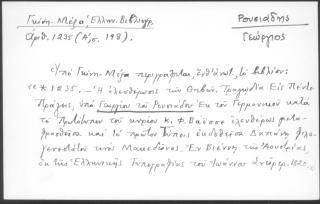 Γκίνη-Μέξα, Ἑλλην. Βιβλιογρ.
ἀριθ. 1235 (Α', σ. 198).
Ρουσιάδης
Γεώργιος
Ὑπὸ Γκίνη-Μέξα περιγράφεται, ἐνθ' ἀνωτ., τὸ βιβλίον:
« * 1235. — Ἡ ἐλευθέρωσις τῶν Θηβῶν. Τραγωδία Εἰς Πέντε
Πράξεις, ὑπὸ Γεωργίου τοῦ Ρουσιάδου Ἐκ τοῦ Γερμανικοῦ κατὰ
τὸ Πρωτότυπον τοῦ κυρίου Κ. Φ. ἐλευθέρως μετα-
φρασθεῖσα καὶ τὸ πρῶτον Τύποις ἐκδοθεῖσα Δαπάνῃ φιλο-
γενεστάτου τινὸς Μακεδόνος. Ἐν Βιέννῃ τῆς Αὐστρίας,
ἐκ τῆς Ἑλληνικῆς Τυπογραφίας τοῦ Ἰωάννου 1820.